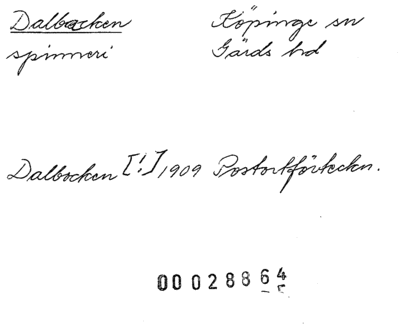 Dalbacken Köpinge sn
spinneri Gärds hd
Dalbocken [!] 1909 Postortförteckn.
00028864